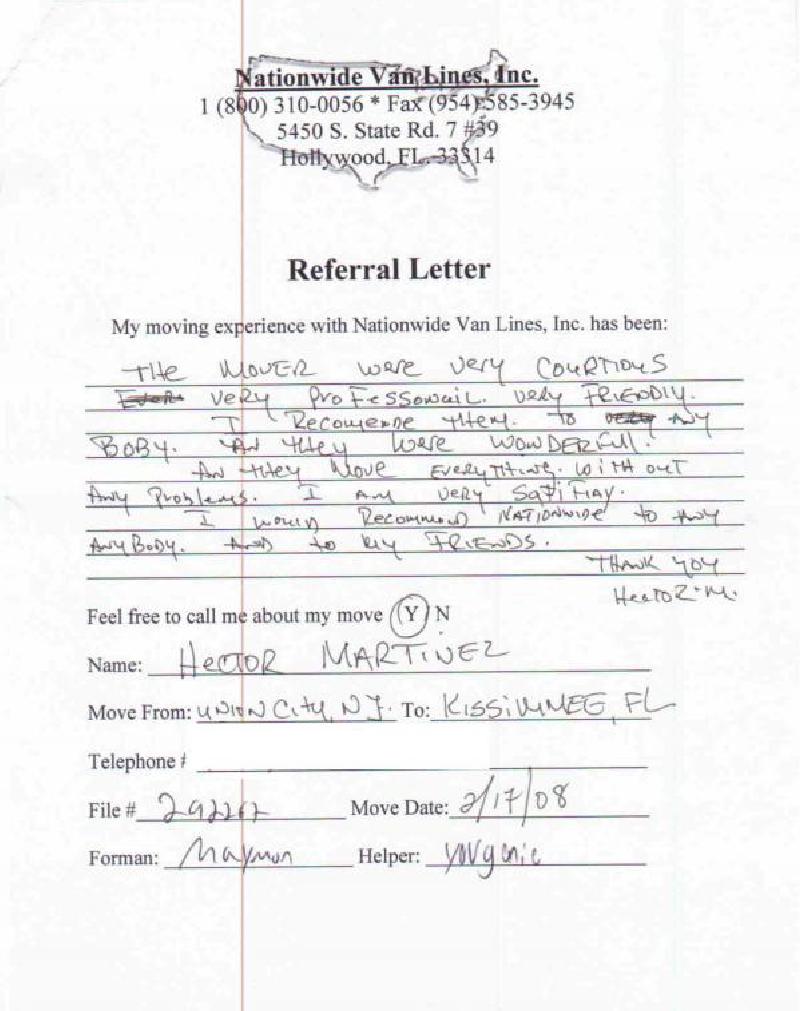 Nationwide Van Lines, Inc.
1 (800) 310-0056 * Fax (954) 585-3945
5450 S. State Rd. 7 #39
Hollywood, FL. 33314
Referral Letter
My moving experience with Nationwide Van Lines, Inc. has been:
THE MOVER were very COURTIOUS
very ProFessonail. very FRiENDly.
I Recomende them. to Any
BoBy. An they were WONDERFUll.
An they Move EVERyTHiNg. WiTH out
Any Problems. I Am very SatiFiay.
I would Recommend NATiONWiDE to Any
AnyBody. And to My FRiENDS.
THANK YOU
HectoR. M.
Feel free to call me about my move Y N
Name: HecTOR MARTiNEZ
Move From: UNiON City, NJ. To: KiSSiMMEE, FL
Telephone #
File # Move Date: 2/17/08
Forman: Maymon Helper: